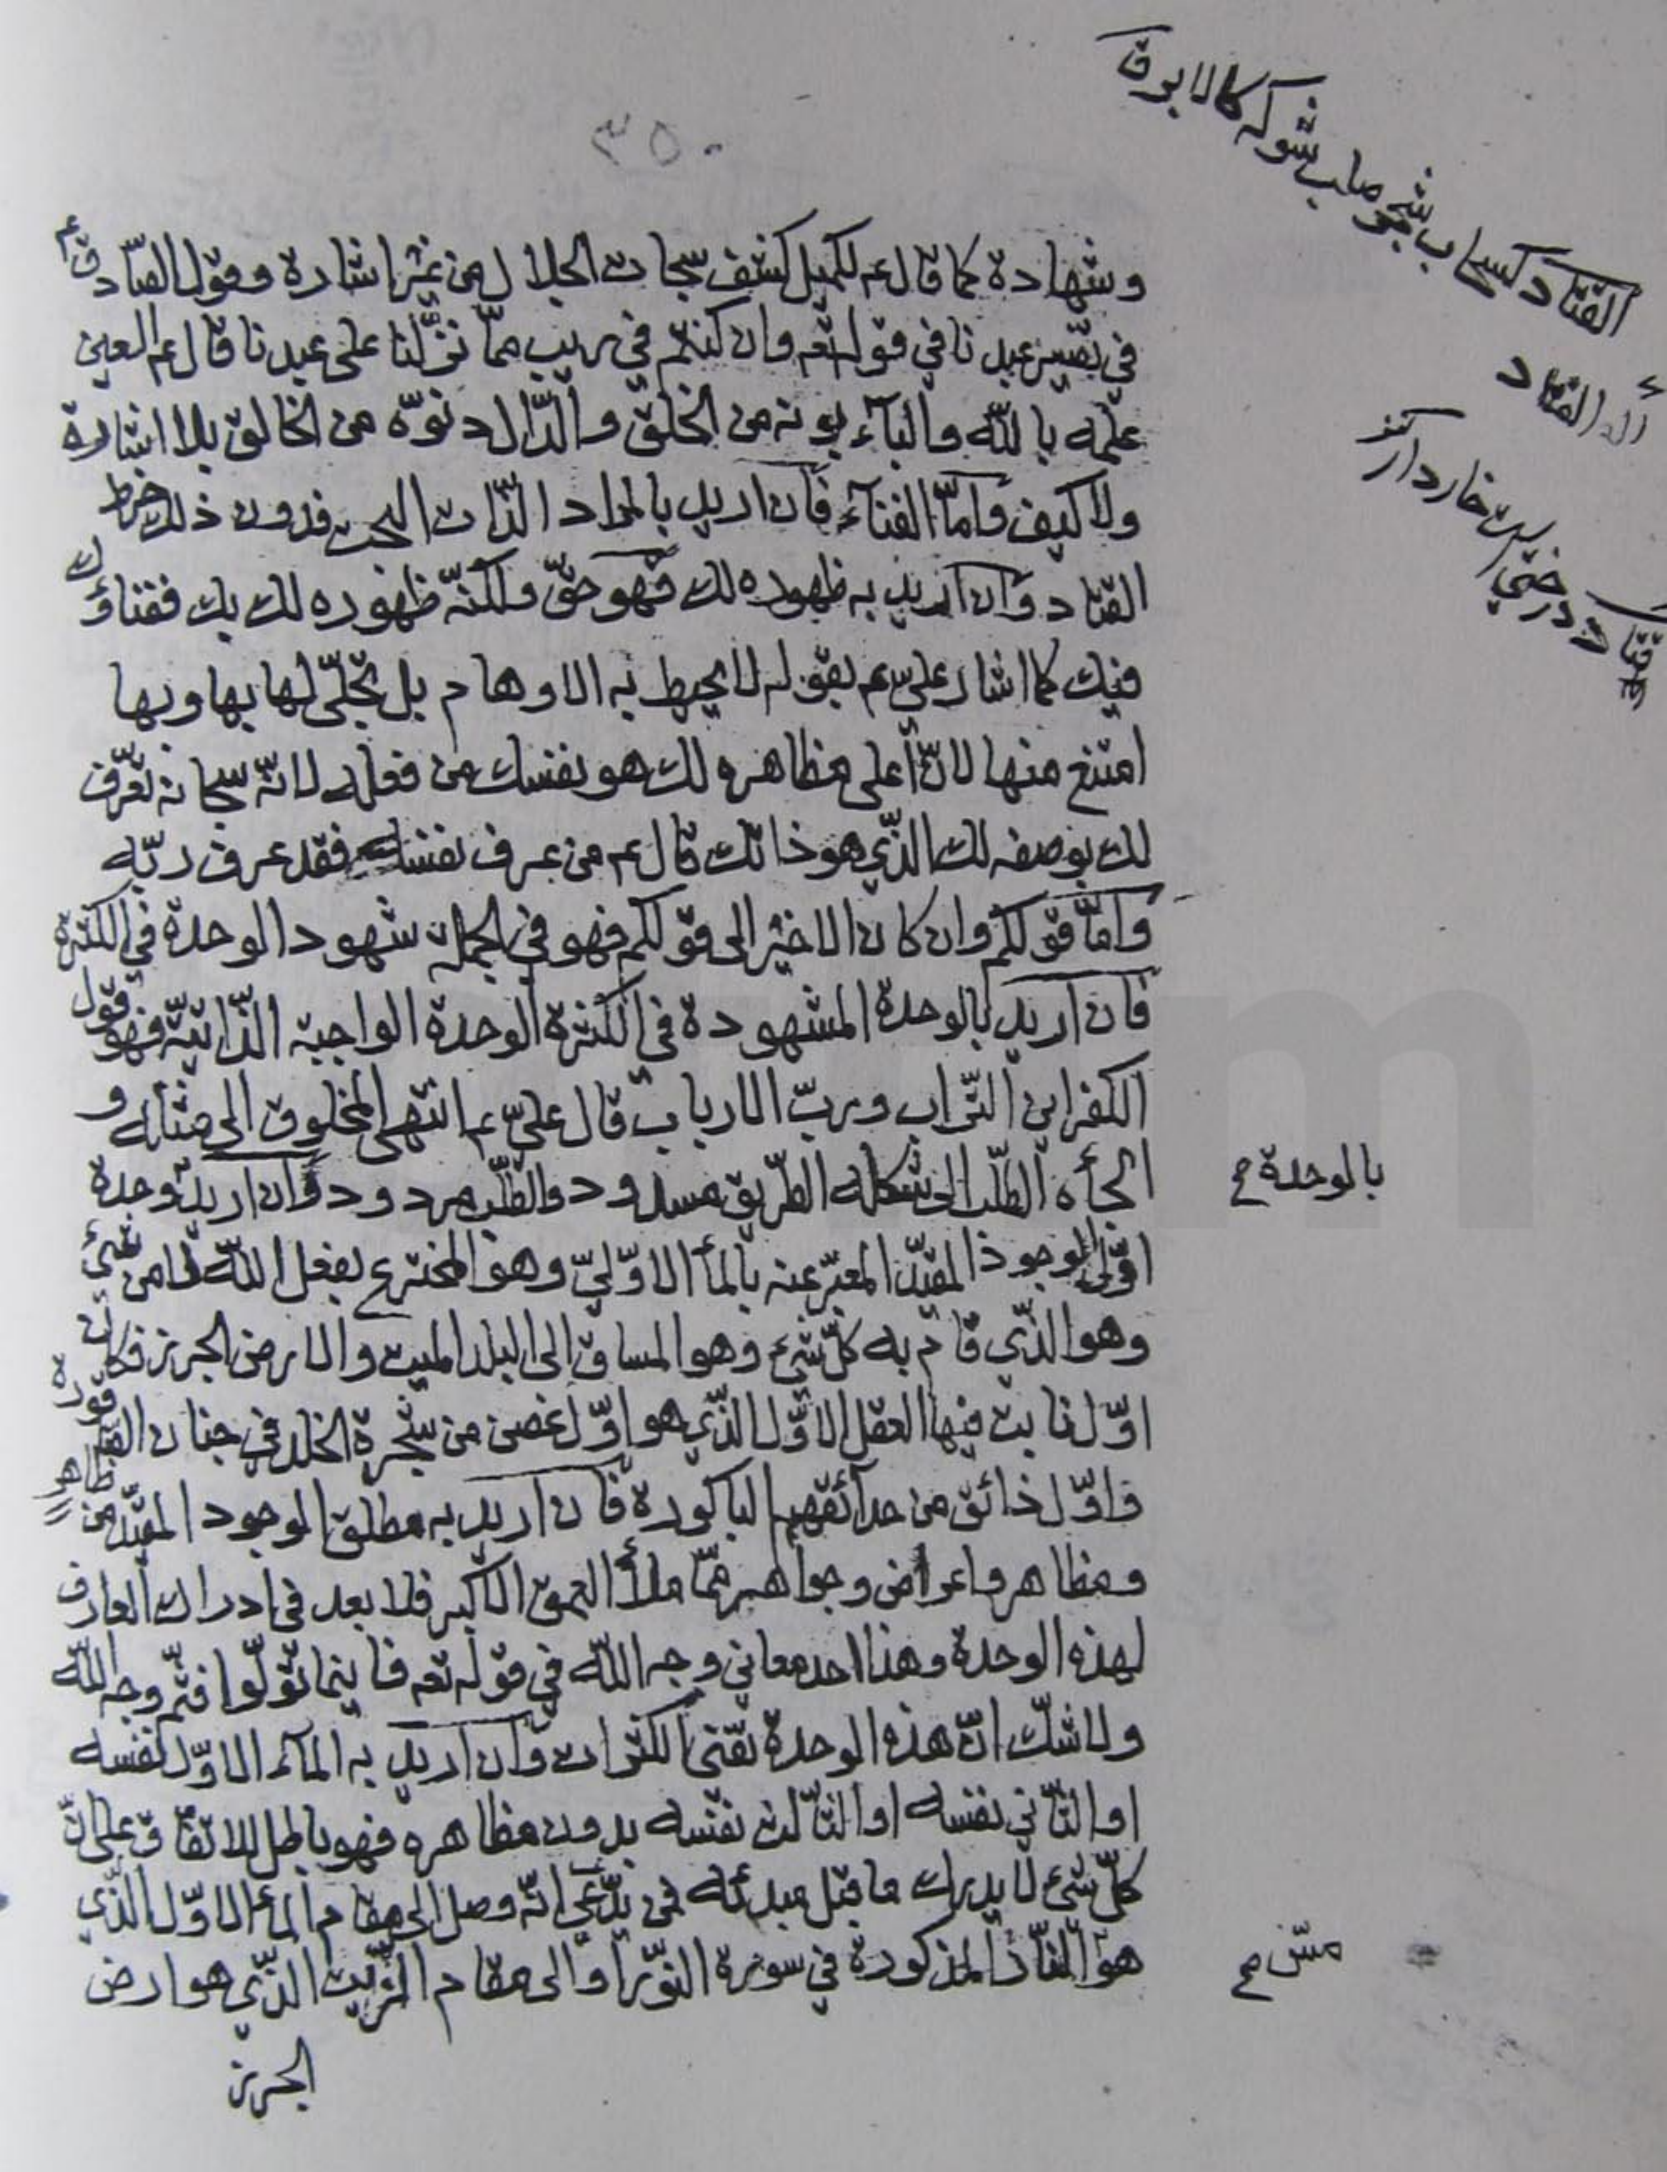 ٣٥٠
القتاد كسحاب شجر صلب شوكه كالابر ق
القتاد
درختيست خاردار كنز
وشهادة كما قال عم لكميل كشف سبحات الجلال من غير اشارة وقول الصادق عم
في تفسير عبدنا في قوله تعه وان كنتم في ريب مما نزّلنا على عبدنا قال عم العين
علمه بالله والبآء بونه من الخلق والدّال دنوّه من الخالق بلا اشارة
ولا كيف وامّا الفنآء فان اريد بالمراد الذّات البحت فدون ذلك خرط
القتاد وان اريد به ظهوره لك فهو حقّ ولكنّه ظهوره لك بك ففناؤك
فيك كما اشار علي عم بقوله لا يحيط به الاوهام بل تجلّى لها بها وبها
امتنع منها لانّ اعلى مظاهره لك هو نفسك من فعله لانّه سبحانه تعرّف
لك بوصفه لك الذّي هو ذاتك قال عم من عرف نفسه فقد عرف ربّه
وامّا قولكم وان كان الاخير الى قولكم فهو في الجملة شهود الوحدة في الكثرة
فان اريد بالوحدة المشهودة في الكثرة الوحدة الواجبة الذّاتيّة فهو قول
الكفر اين التّراب وربّ الارباب قال عليّ عم انتهى المخلوق الى مثله و
الجأه الطّلب الى شكله الطّريق مسدود والطّلب مردود وان اريد وحدة
بالوحدة صح
اوّل الوجود المقيّد المعبّر عنه بالمآء الاوّليّ وهو المخترع بفعل الله لا من شئ
وهو الذّي قام به كلّ شئ وهو المساق الى البلد الميت والارض الجرز فكان
اوّل نابت فيها العقل الاوّل الذّي هو اوّل غصن من شجرة الخلد في جنان الصاقورة
واوّل ذائق من حدآئقهم الباكورة فان اريد به مطلق الوجود المقيّد من ظاهر
ومظاهر واعراض وجواهر ممّا ملأ العمق الاكبر فلا بعد في ادراك العارف
لهذه الوحدة وهذا احد معاني وجه الله في قوله تعه فاينما تولّوا فثمّ وجه الله
ولا شكّ انّ هذه الوحدة تفنى الكثرات وان اريد به المآء الاوّل نفسه
او الثّاني نفسه او الثّالث نفسه بدون مظاهره فهو باطل للاتفاق على انّ
كلّ شئ لا يدرك ما قبل مبدئه فمن يدّعي انّه وصل الى مقام المآء الاوّل الذّي
هو النّار المذكورة في سورة النّور او الى مقام الزّيت الذّي هو ارض
مسّ صح
الجرز